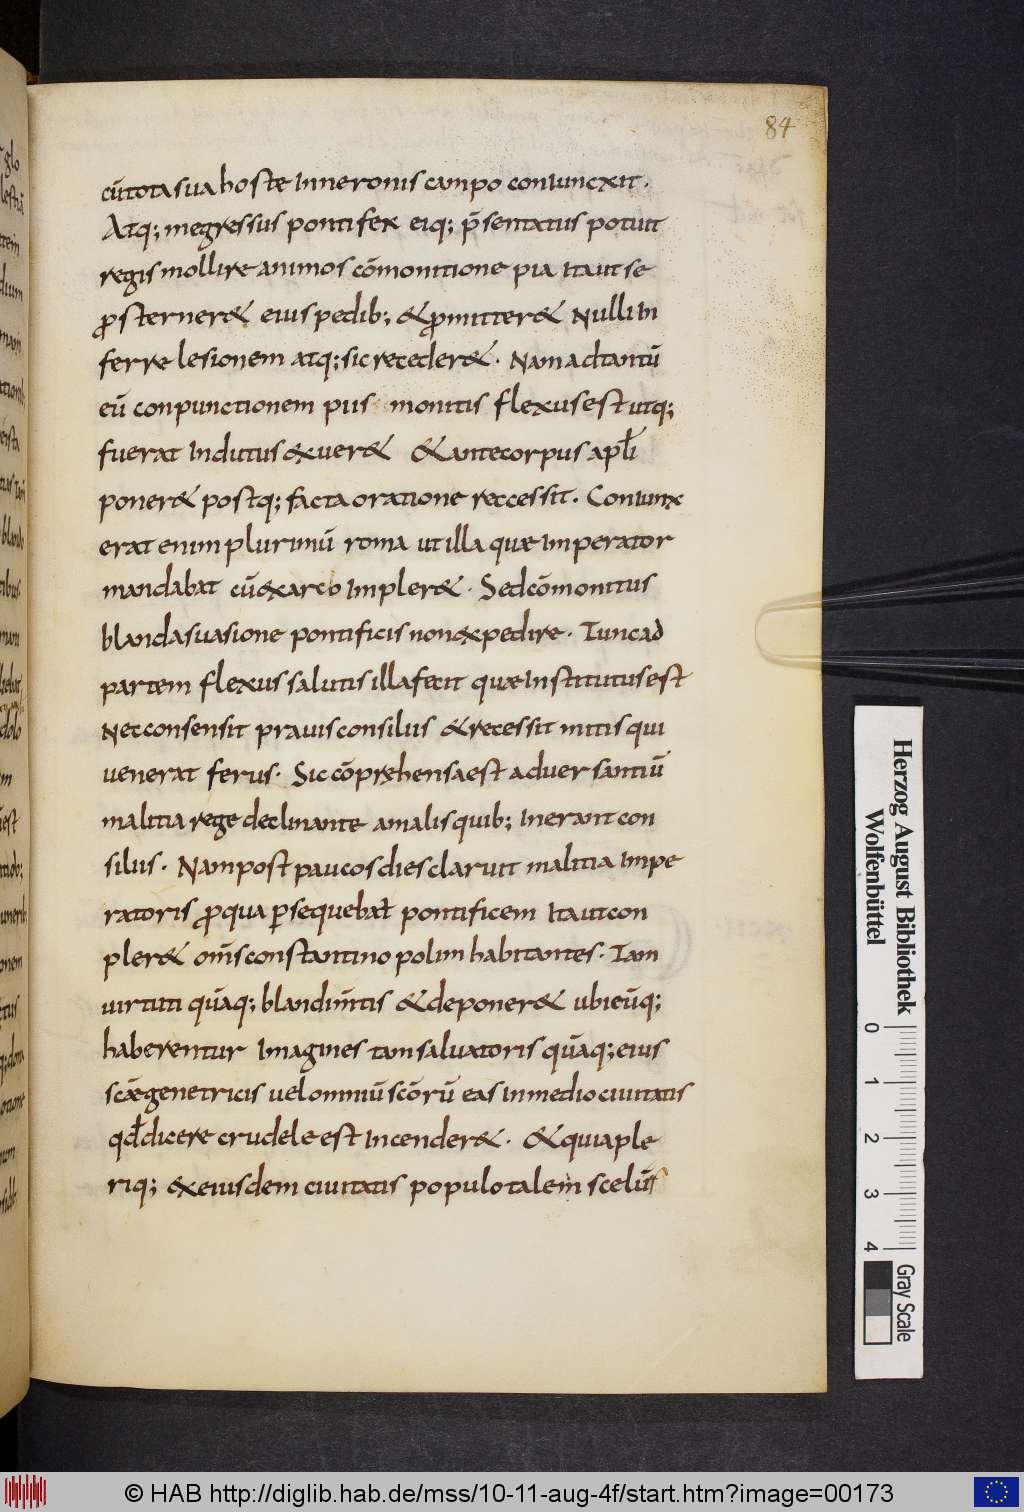 84
cū tota sua hoste in neronis campo coniuncxit.
Atq; inegressus pontifex eiq; p̄sentatus potuit
regis mollire animos cōmonitione pia ita ut se
ꝓsterner& eius pedib; & ꝓmitter& nulli in
ferre lesionem atq; sic receder&. Nam ad tantū
eū conpunctionem piis monitis flexus est utq;
fuerat indutus exuer& & ante corpus apl̄i
poner& postq; facta oratione reccessit. Coniunx
erat enim plurimū roma ut illa quæ imperator
mandabat cū exarco impler&. Sed cōmonitus
blanda suasione pontificis non expedire. Tunc ad
partem flexus salutis illa fecit quæ institutus est
Nec consensit prauis consiliis & recessit mitis qui
uenerat ferus. Sic cōprehensa est aduersantiū
malitia rege declinante a malis quib; inerant con
siliis. Nam post paucos dies claruit malitia impe
ratoris ꝓ qua ꝑsequebat̄ pontificem ita ut con
pler& om̄s constantinopolim habitantes. Tam
uirtuti quāq; blandim̄tis & deponer& ubicūq;
haberentur imagines tam saluatoris quāq; eius
scǣ genetricis uel omniū scōrū eas in medio ciuitatis
qd̄ dicere crudele est incender&. & quia ple
riq; ex eiusdem ciuitatis populo talem scelus
Herzog August Bibliothek
Wolfenbüttel
0 1 2 3 4
Gray Scale
© HAB http://diglib.hab.de/mss/10-11-aug-4f/start.htm?image=00173